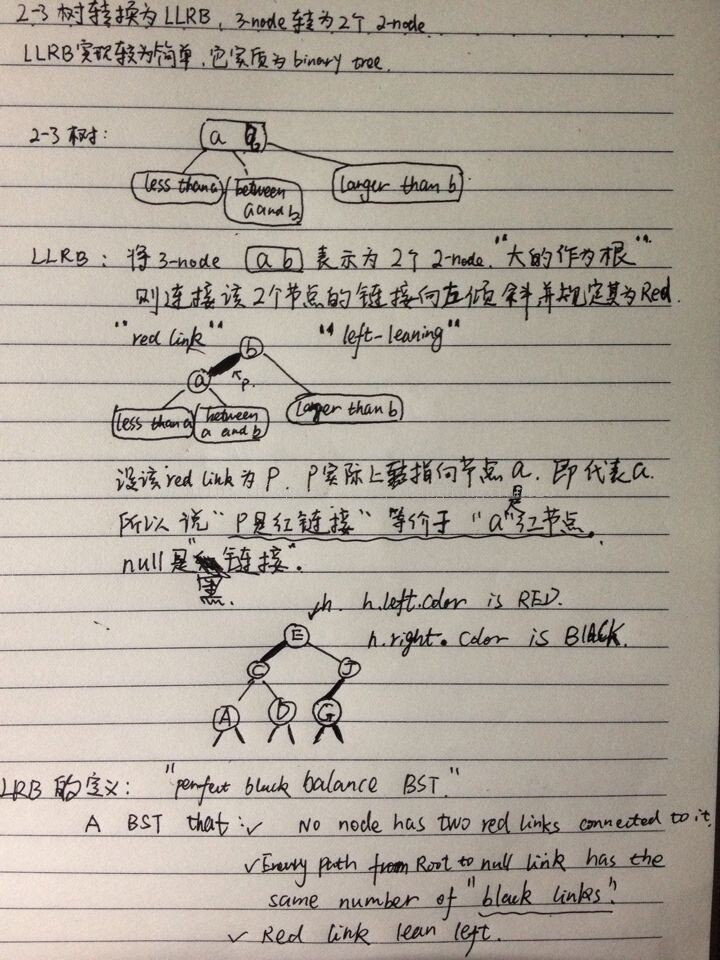 2-3树转换为LLRB,3-node转为2个2-node
LLRB实现较为简单,它实质为binary tree.
2-3树:
a
less than a
between
a and b
larger than b
LLRB: 将3-node a b 表示为2个2-node."大的作为根".
则连接该2个节点的链接向左倾斜并规定其为Red.
"red link" "left-leaning"
b
a
p.
less than a
between
a and b
larger than b
设该red link为P. P实际上指向节点a. 即代表a.
所以说"P是红链接"等价于"a"是红节点.
null是"黑链接".
h. h.left.color is RED.
h.right.color is BlACK.
E
C J
A D G
LRB的定义: "perfect black balance BST."
A BST that: ✓ No node has two red links connected to it.
✓ Every path from Root to null link has the
same number of "black links".
✓ Red link lean left.